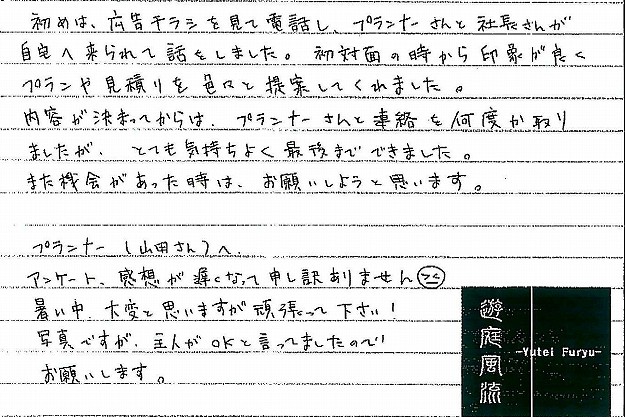 初めは、広告チラシを見て電話し、プランナーさんと社長さんが
自宅へ来られて話をしました。初対面の時から印象が良く
プランや見積りを色々と提案してくれました。
内容が決まってからは、プランナーさんと連絡を何度か取り
ましたが、とても気持ちよく最後までできました。
また機会があった時は、お願いしようと思います。
プランナー(山田さん)へ
アンケート、感想が遅くなって申し訳ありません
暑い中、大変と思いますが頑張って下さい!
写真ですが、主人がOKと言ってましたので!
お願いします。
遊庭風流
-Yutei Furyu-